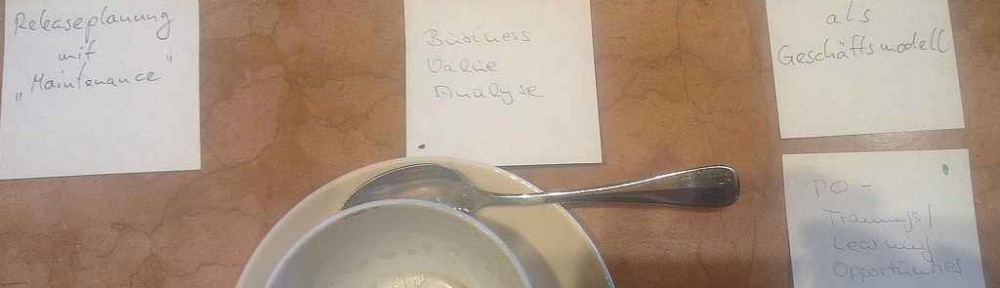 Releaseplanung
mit
"Maintenance"
Business
Value
Analyse
als
Geschäftsmodell
PO -
Trainings/
Learning
Opportunities